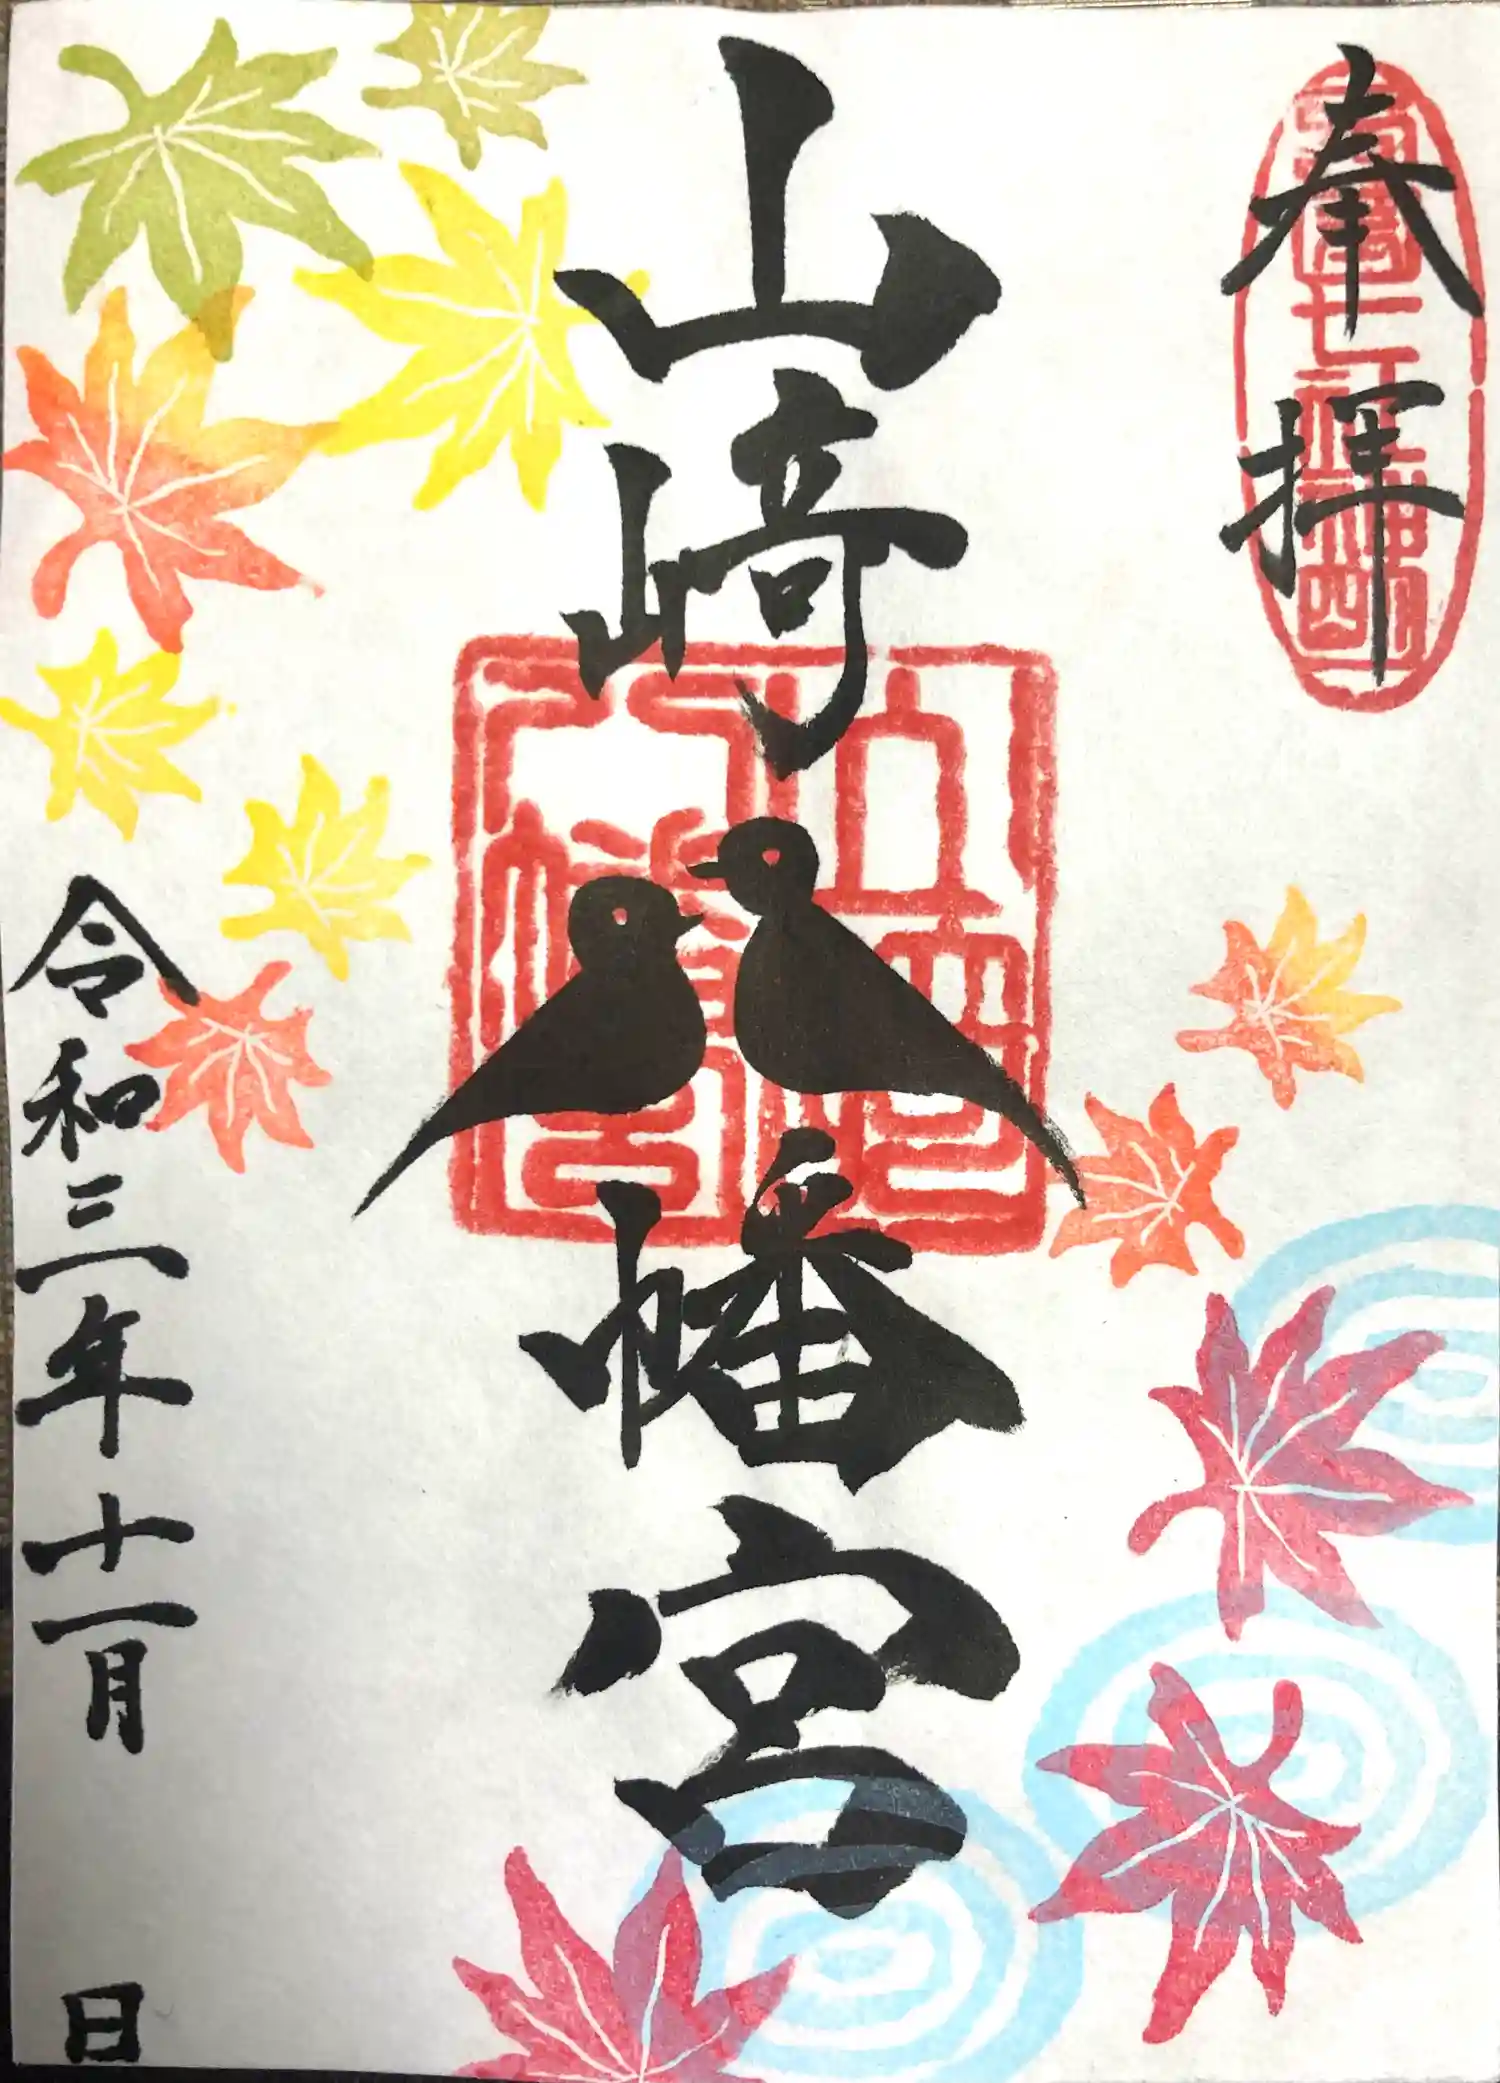 奉拝
山﨑八幡宮
令和三年十一月　日